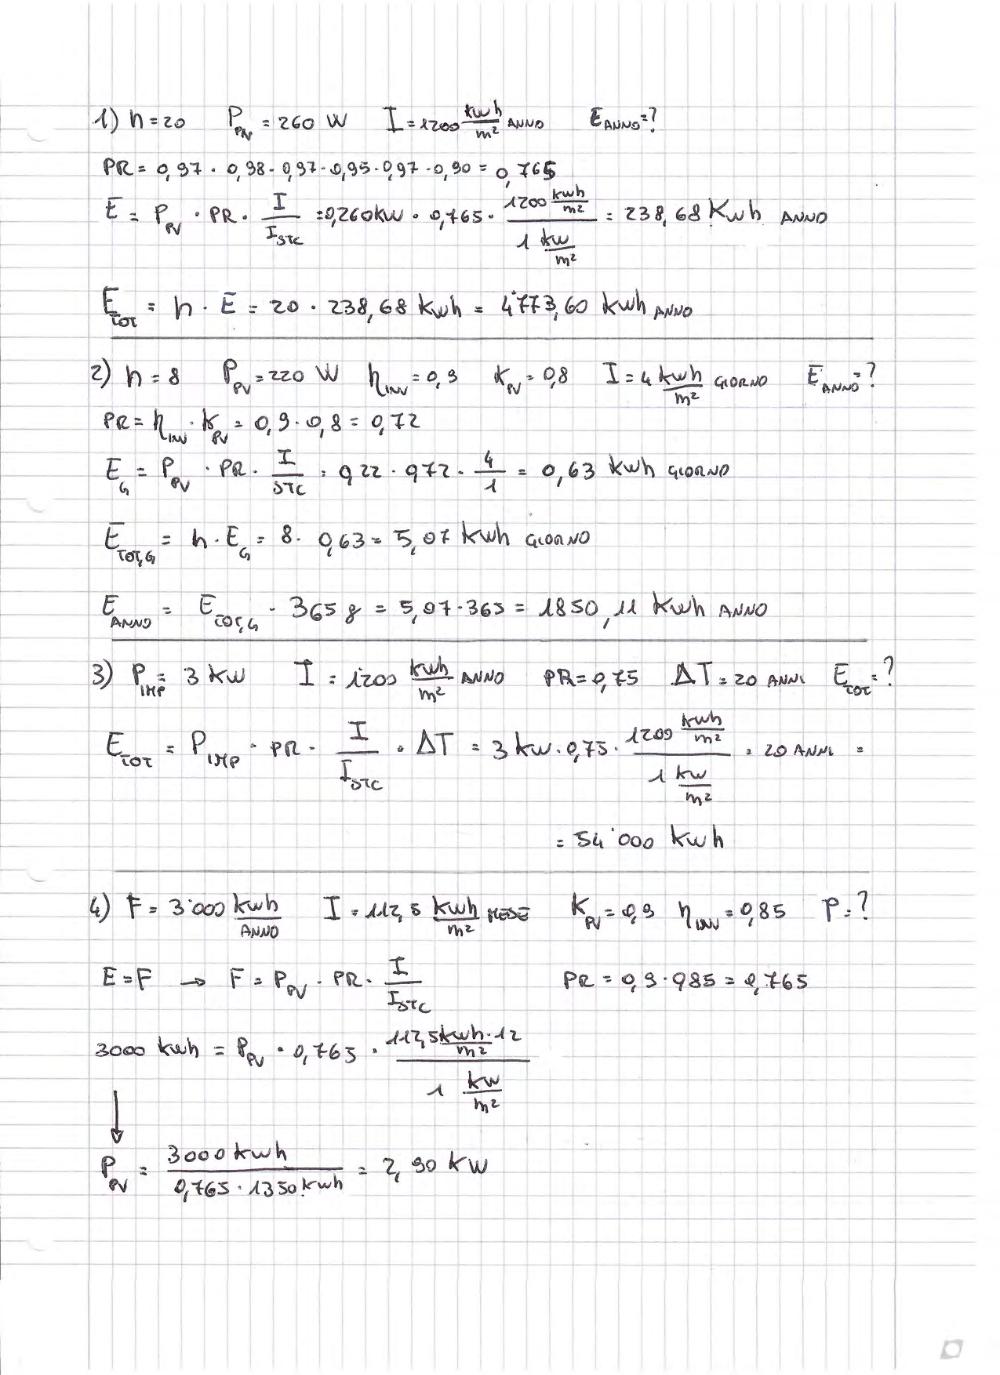 1) n=20 P_PV = 260 W I = 1200 kWh/m² ANNO E_ANNO = ?
PR = 0,97 · 0,98 · 0,97 · 0,95 · 0,97 · 0,90 = 0,765
E = P_PV · PR · I/I_STC = 0,260 kW · 0,765 · 1200 kWh/m² / 1 kW/m² = 238,68 KWh ANNO
E_TOT = n · E = 20 · 238,68 kWh = 4'773,60 kWh ANNO
2) n = 8 P_PV = 220 W η_INV = 0,9 K_PV = 0,8 I = 4 kWh/m² GIORNO E_ANNO = ?
PR = η_INV · K_PV = 0,9 · 0,8 = 0,72
E_G = P_PV · PR · I/STC = 0,22 · 0,72 · 4/1 = 0,63 kWh GIORNO
E_TOT,G = n · E_G = 8 · 0,63 = 5,07 kWh GIORNO
E_ANNO = E_TOT,G · 365 g = 5,07 · 365 = 1850,11 KWh ANNO
3) P_IMP = 3 KW I = 1200 kWh/m² ANNO PR = 0,75 ΔT = 20 ANNI E_TOT = ?
E_TOT = P_IMP · PR · I/I_STC · ΔT = 3 kW · 0,75 · 1200 kWh/m² / 1 kW/m² · 20 ANNI =
= 54'000 kWh
4) F = 3'000 kWh/ANNO I = 112,5 kWh/m² MESE K_PV = 0,9 η_INV = 0,85 P = ?
E = F → F = P_PV · PR · I/I_STC PR = 0,9 · 0,85 = 0,765
3000 kWh = P_PV · 0,765 · 112,5 kWh/m² · 12 / 1 kW/m²
↓
P_PV = 3000 kWh / 0,765 · 1350 kWh = 2,90 KW